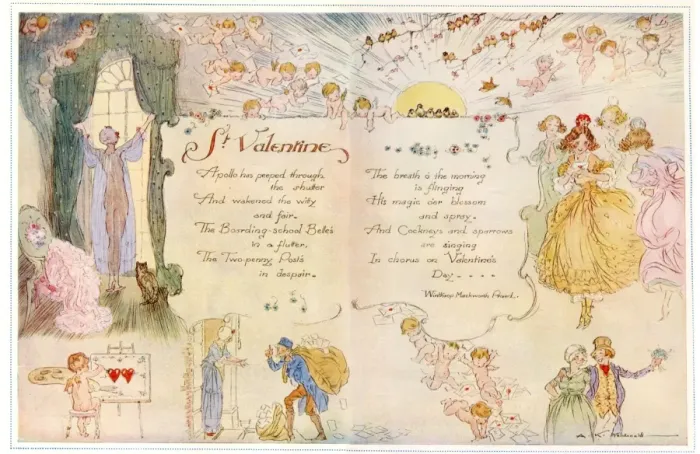 St Valentine
Apollo has peeped through
the shutter
And wakened the witty
and fair.
The Boarding-school Belle's
in a flutter.
The Two-penny Post's
in despair.
The breath o' the morning
is flinging
His magic o'er blossom
and spray.
And Cockneys and sparrows
are singing
In chorus on Valentine's
Day - - - -
Winthrop Mackworth Praed.